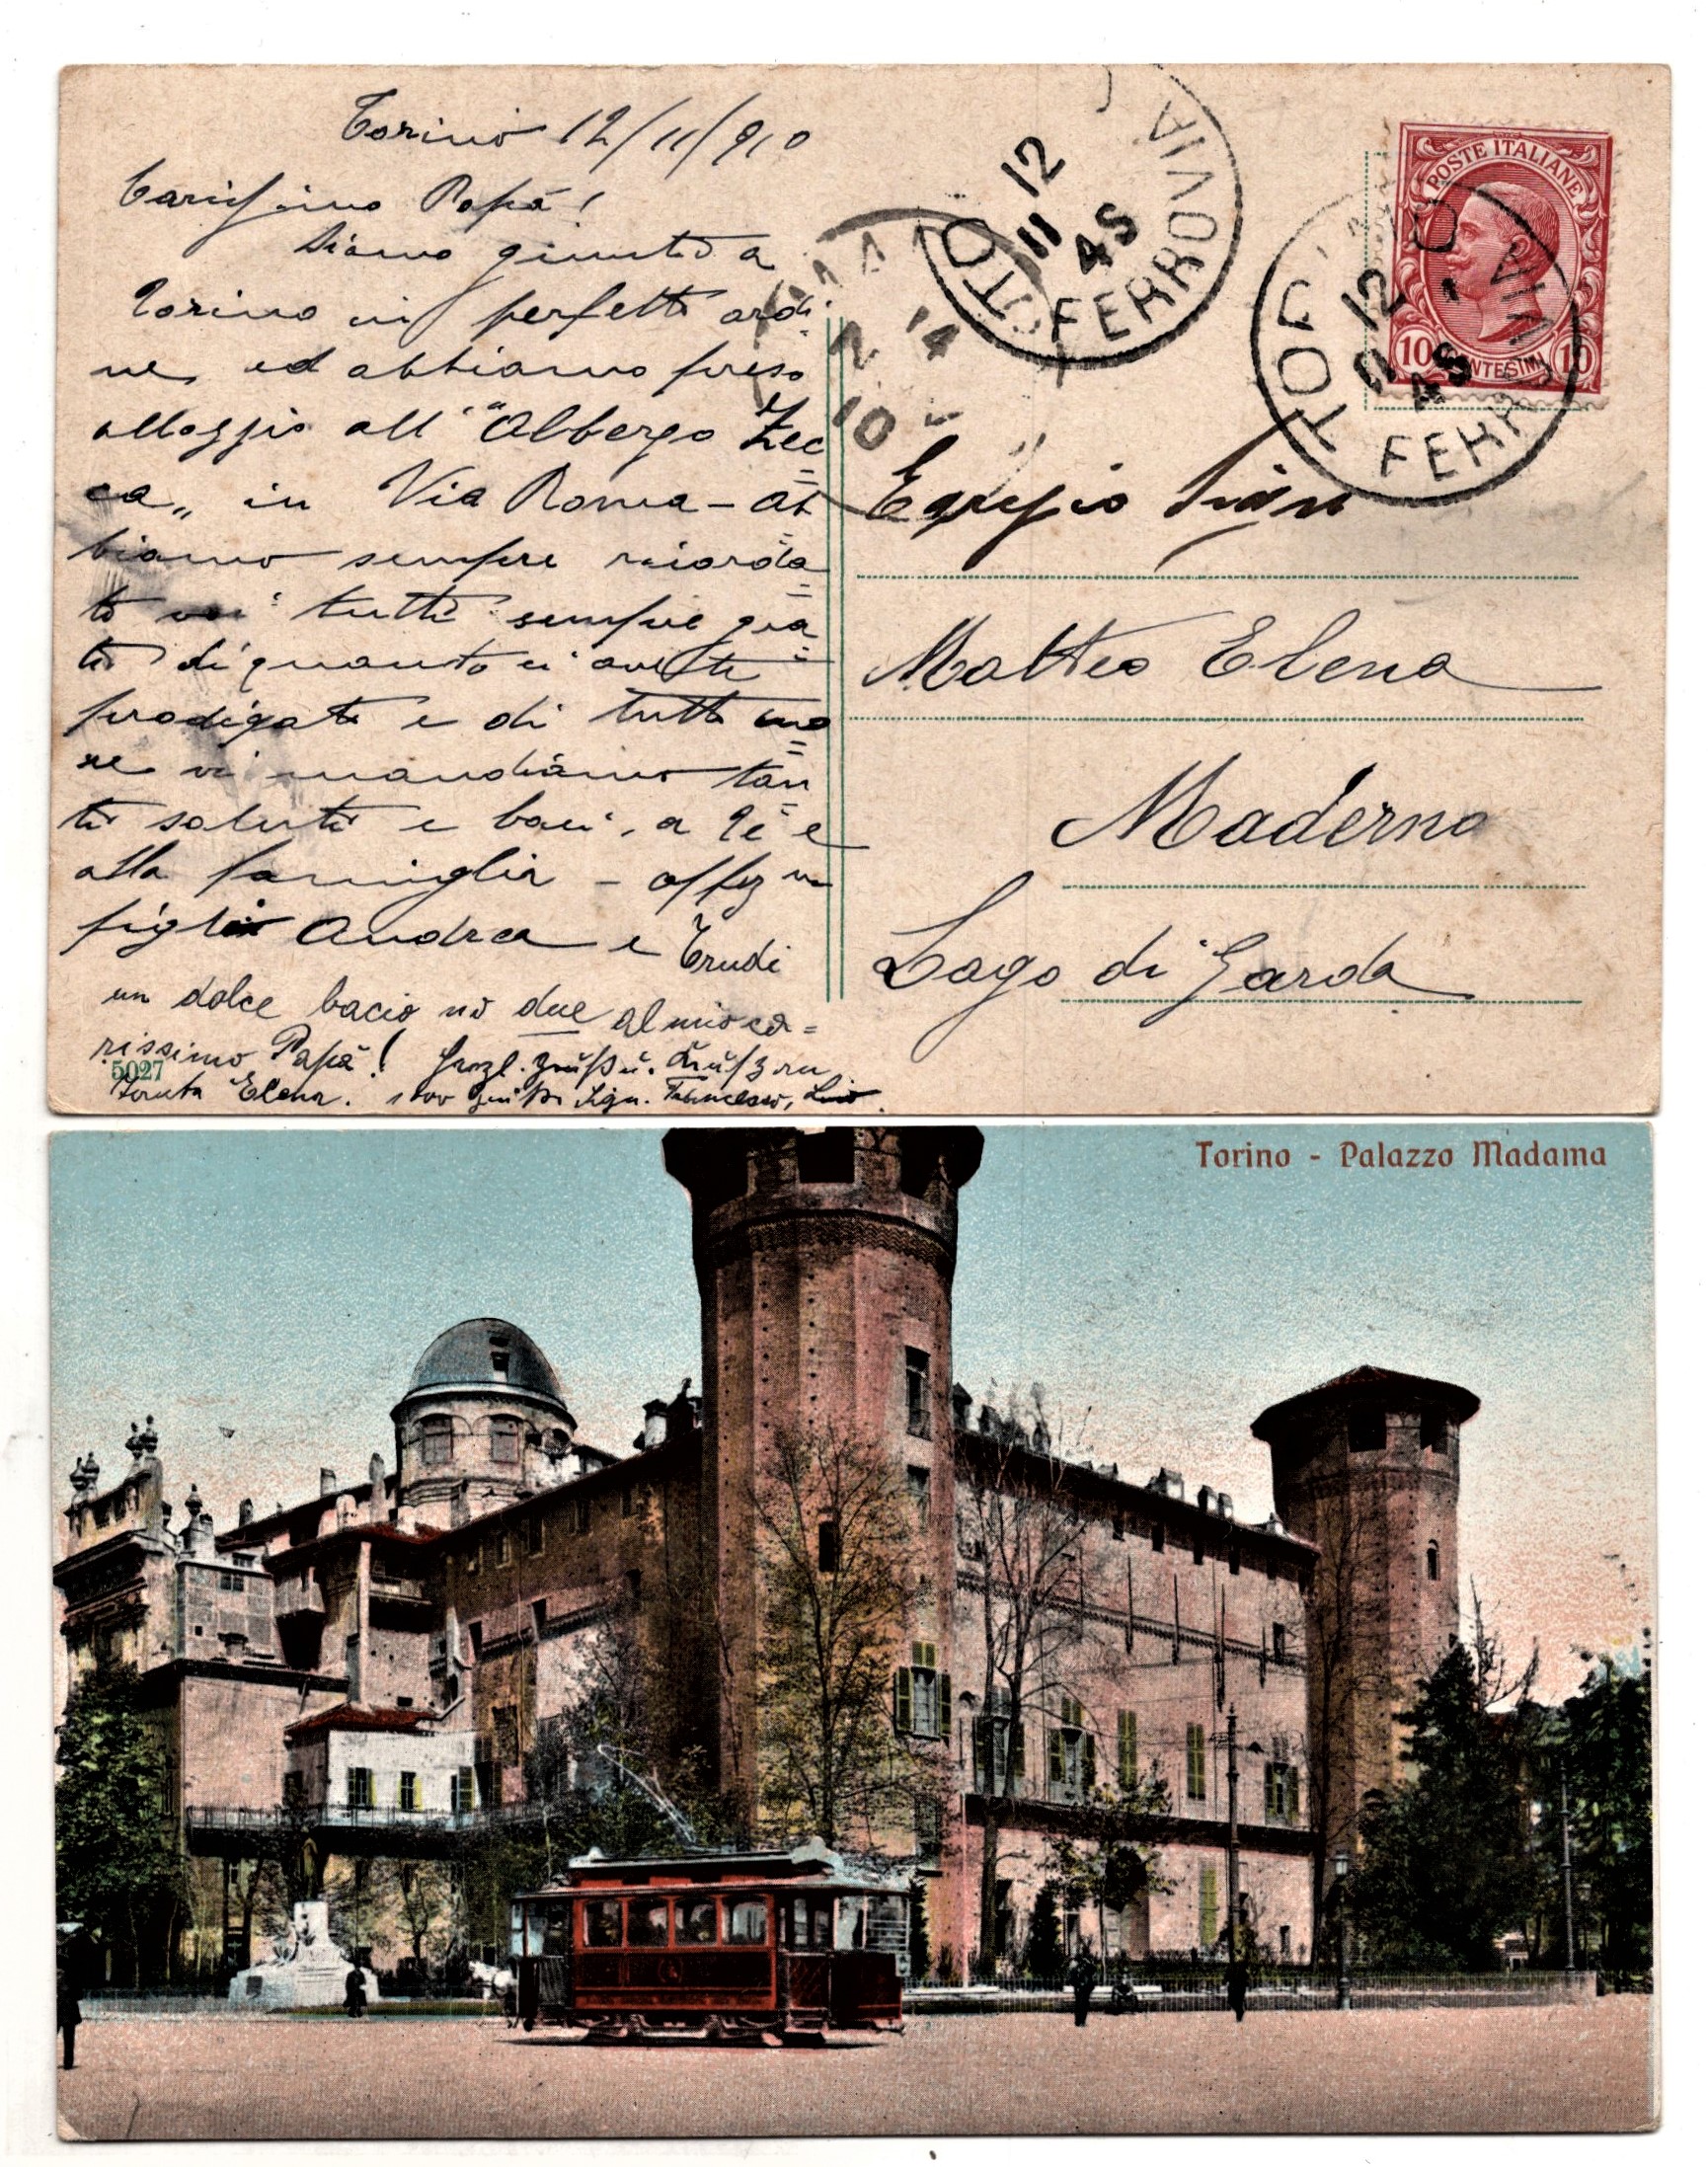 Torino 12/11/910
Carissimo Papà!
Siamo giunti a
Torino in perfetto ordi-
ne, ed abbiamo preso
alloggio all'"Albergo Zec=
ca„ in Via Roma - Ab=
biamo sempre ricorda=
to voi tutti sempre gra=
ti di quanto ci aveste
prodigato e di tutto cuo=
re vi mandiamo tan=
ti saluti e baci, a Te e
alla famiglia - affez mi
figli Andrea e Trudi
un dolce bacio nò due al mio ca=
rissimo Papà!
5027
Elena.
POSTE ITALIANE
10 CENTESIMI 10
TORINO FERROVIA
12 11 4S
TORINO FERROVIA
12 11 4S
14
10
Egregio Sign
Matteo Elena
Maderno
Lago di Garda
Torino - Palazzo Madama